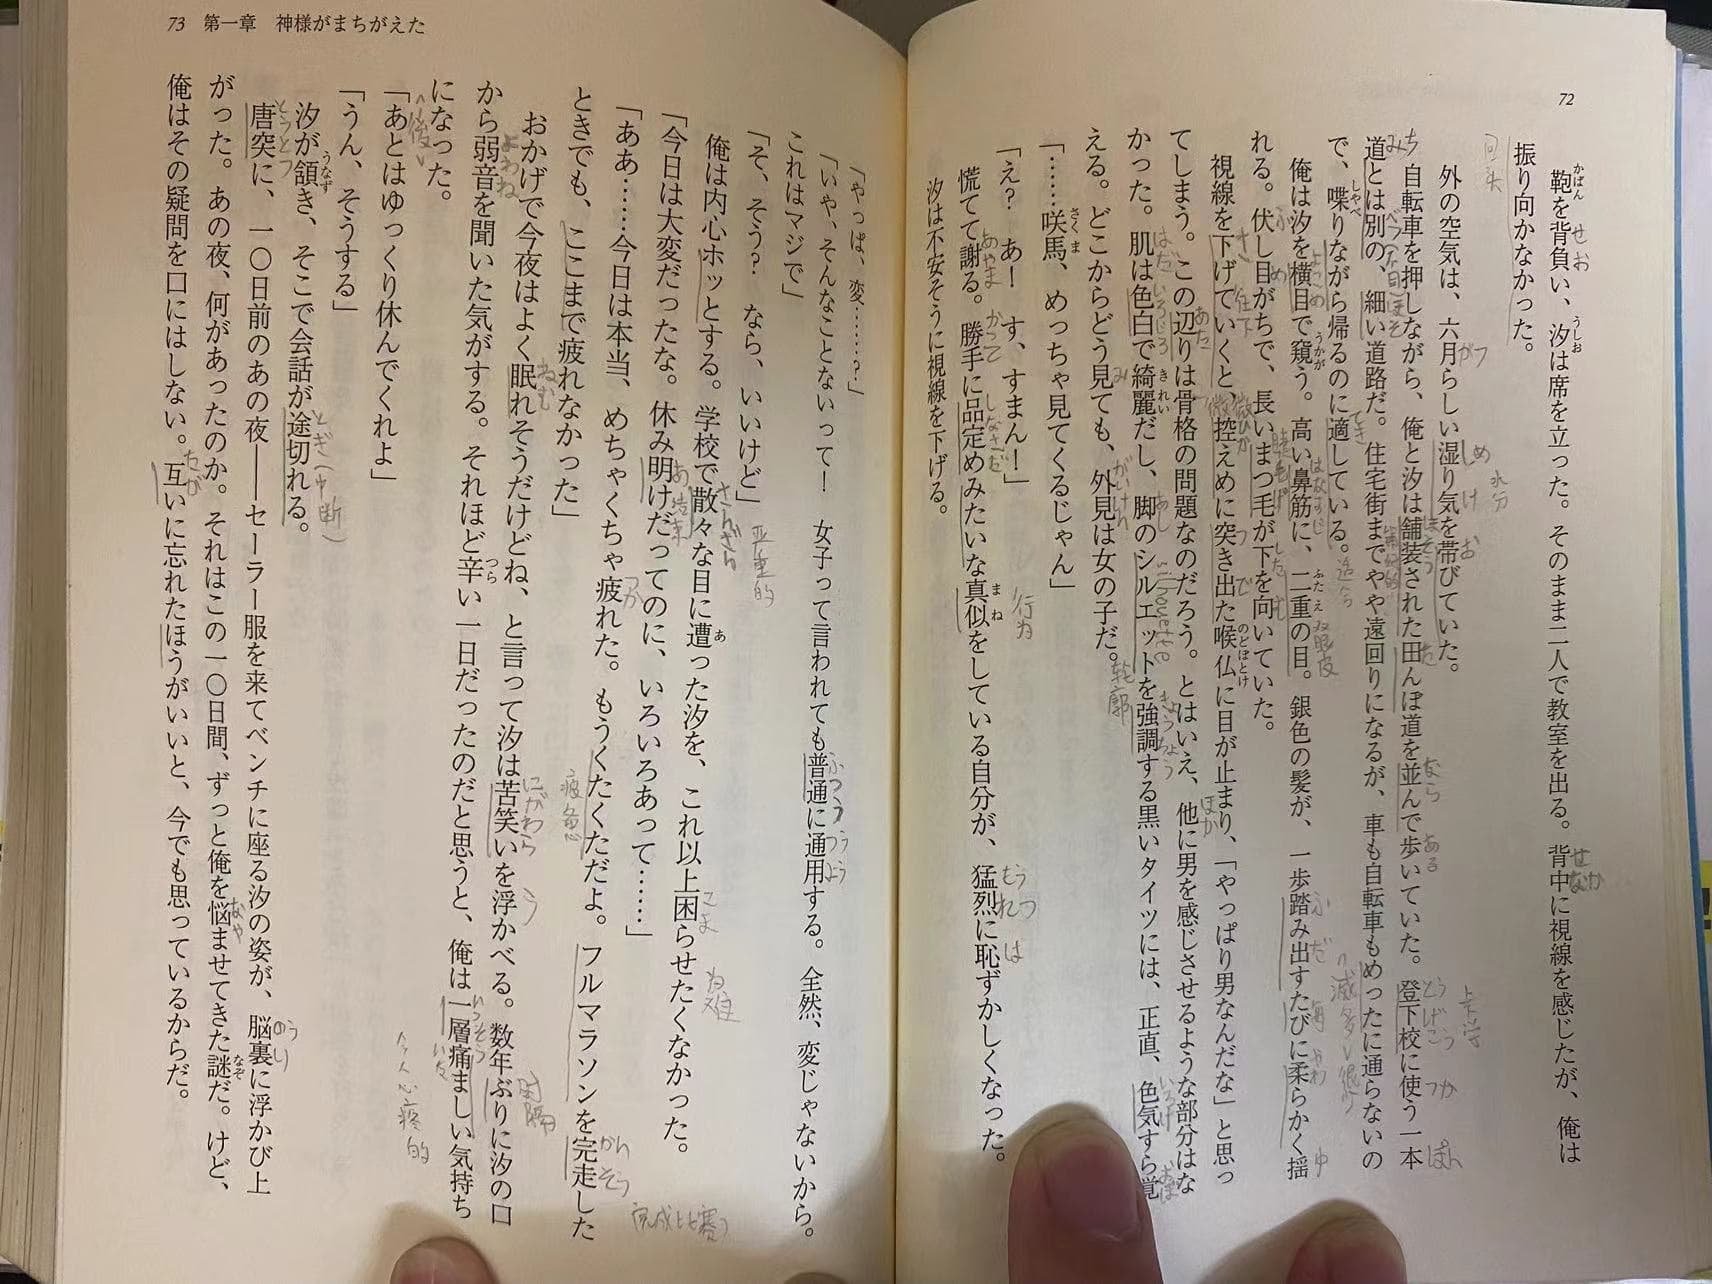 72
鞄を背負い、汐は席を立った。そのまま二人で教室を出る。背中に視線を感じたが、俺は
振り向かなかった。
外の空気は、六月らしい湿り気を帯びていた。
自転車を押しながら、俺と汐は舗装された田んぼ道を並んで歩いていた。登下校に使う一本
道とは別の、細い道路だ。住宅街までやや遠回りになるが、車も自転車もめったに通らないの
で、喋りながら帰るのに適している。
俺は汐を横目で窺う。高い鼻筋に、二重の目。銀色の髪が、一歩踏み出すたびに柔らかく揺
れる。伏し目がちで、長いまつ毛が下を向いていた。
視線を下げていくと、控えめに突き出た喉仏に目が止まり、「やっぱり男なんだな」と思っ
てしまう。この辺りは骨格の問題なのだろう。とはいえ、他に男を感じさせるような部分はな
かった。肌は色白で綺麗だし、脚のシルエットを強調する黒いタイツには、正直、色気すら覚
える。どこからどう見ても、外見は女の子だ。
「……咲馬、めっちゃ見てくるじゃん」
「え? あ! す、すまん!」
慌てて謝る。勝手に品定めみたいな真似をしている自分が、猛烈に恥ずかしくなった。
汐は不安そうに視線を下げる。
73 第一章 神様がまちがえた
「やっぱ、変……?」
「いや、そんなことないって! 女子って言われても普通に通用する。全然、変じゃないから。
これはマジで」
「そ、そう? なら、いいけど」
俺は内心ホッとする。学校で散々な目に遭った汐を、これ以上困らせたくなかった。
「今日は大変だったな。休み明けだってのに、いろいろあって……」
「ああ……今日は本当、めちゃくちゃ疲れた。もうくたくただよ。フルマラソンを完走した
ときでも、ここまで疲れなかった」
おかげで今夜はよく眠れそうだけどね、と言って汐は苦笑いを浮かべる。数年ぶりに汐の口
から弱音を聞いた気がする。それほど辛い一日だったのだと思うと、俺は一層痛ましい気持ち
になった。
「あとはゆっくり休んでくれよ」
「うん、そうする」
汐が頷き、そこで会話が途切れる。
唐突に、一〇日前のあの夜――セーラー服を来てベンチに座る汐の姿が、脳裏に浮かび上
がった。あの夜、何があったのか。それはこの一〇日間、ずっと俺を悩ませてきた謎だ。けど、
俺はその疑問を口にはしない。互いに忘れたほうがいいと、今でも思っているからだ。